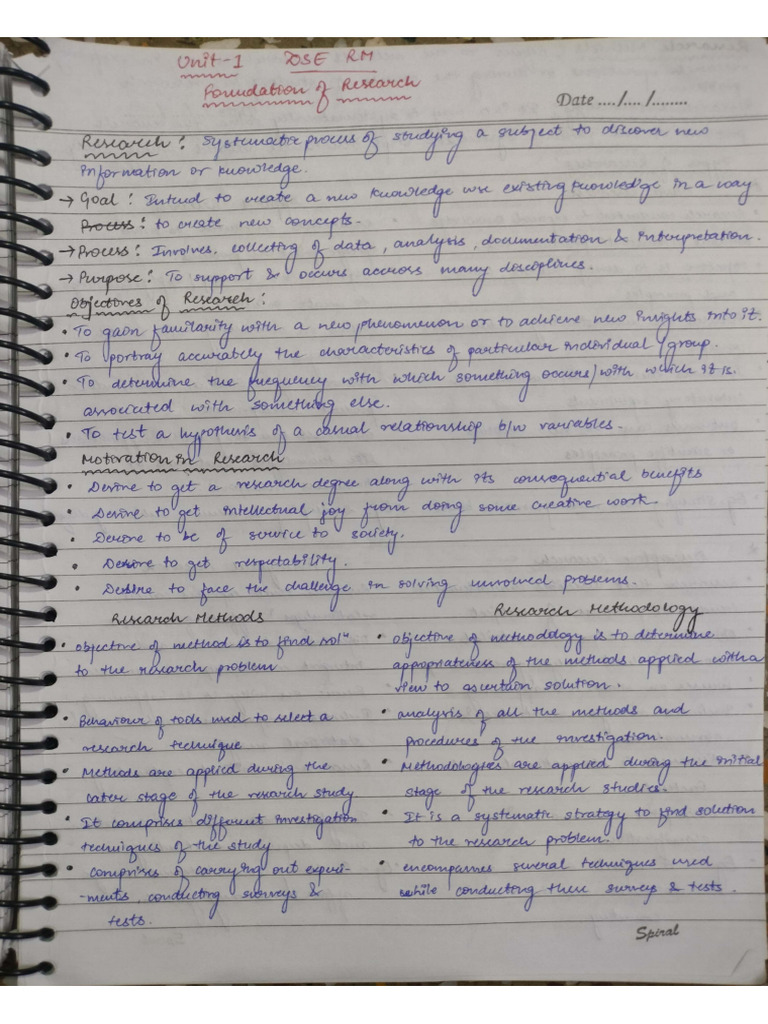 Unit-1 DSE RM
Foundation of Research
Date ..../..../........
Research: Systematic process of studying a subject to discover new
information or knowledge.
→ Goal: Intend to create a new knowledge use existing knowledge in a way
Process: to create new concepts.
→ Process: Involves, collecting of data, analysis, documentation & interpretation.
→ Purpose: To support & occurs accross many desciplines.
Objectives of Research:
• To gain familiarity with a new phenomenon or to achieve new insights into it.
• To portray accurately the characteristics of particular individual /group.
• To determine the frequency with which something occurs/with which it is.
associated with something else.
• To test a hypothesis of a casual relationship b/w variables.
Motivation in Research
• Desire to get a research degree along with its consequential benefits
• Desire to get intellectual joy from doing some creative work
• Desire to be of service to society.
• Desire to get respectability.
• Desire to face the challenge in solving unsolved problems.
Research Methods Research Methodology
• objective of method is to find solⁿ • objective of methodology is to determine
to the research problem appropriateness of the methods applied with a
view to ascertain solution.
• Behaviour of tools used to select a • analysis of all the methods and
research technique procedures of the investigation.
• Methods are applied during the • Methodologies are applied during the initial
later stage of the research study stage of the research studies.
• It comprises different investigation • It is a systematic strategy to find solution
techniques of the study to the research problem.
• comprises of carrying out experi- • encompasses several techniques used
-ments, conducting surveys & while conducting these surveys & tests.
tests.
Spiral